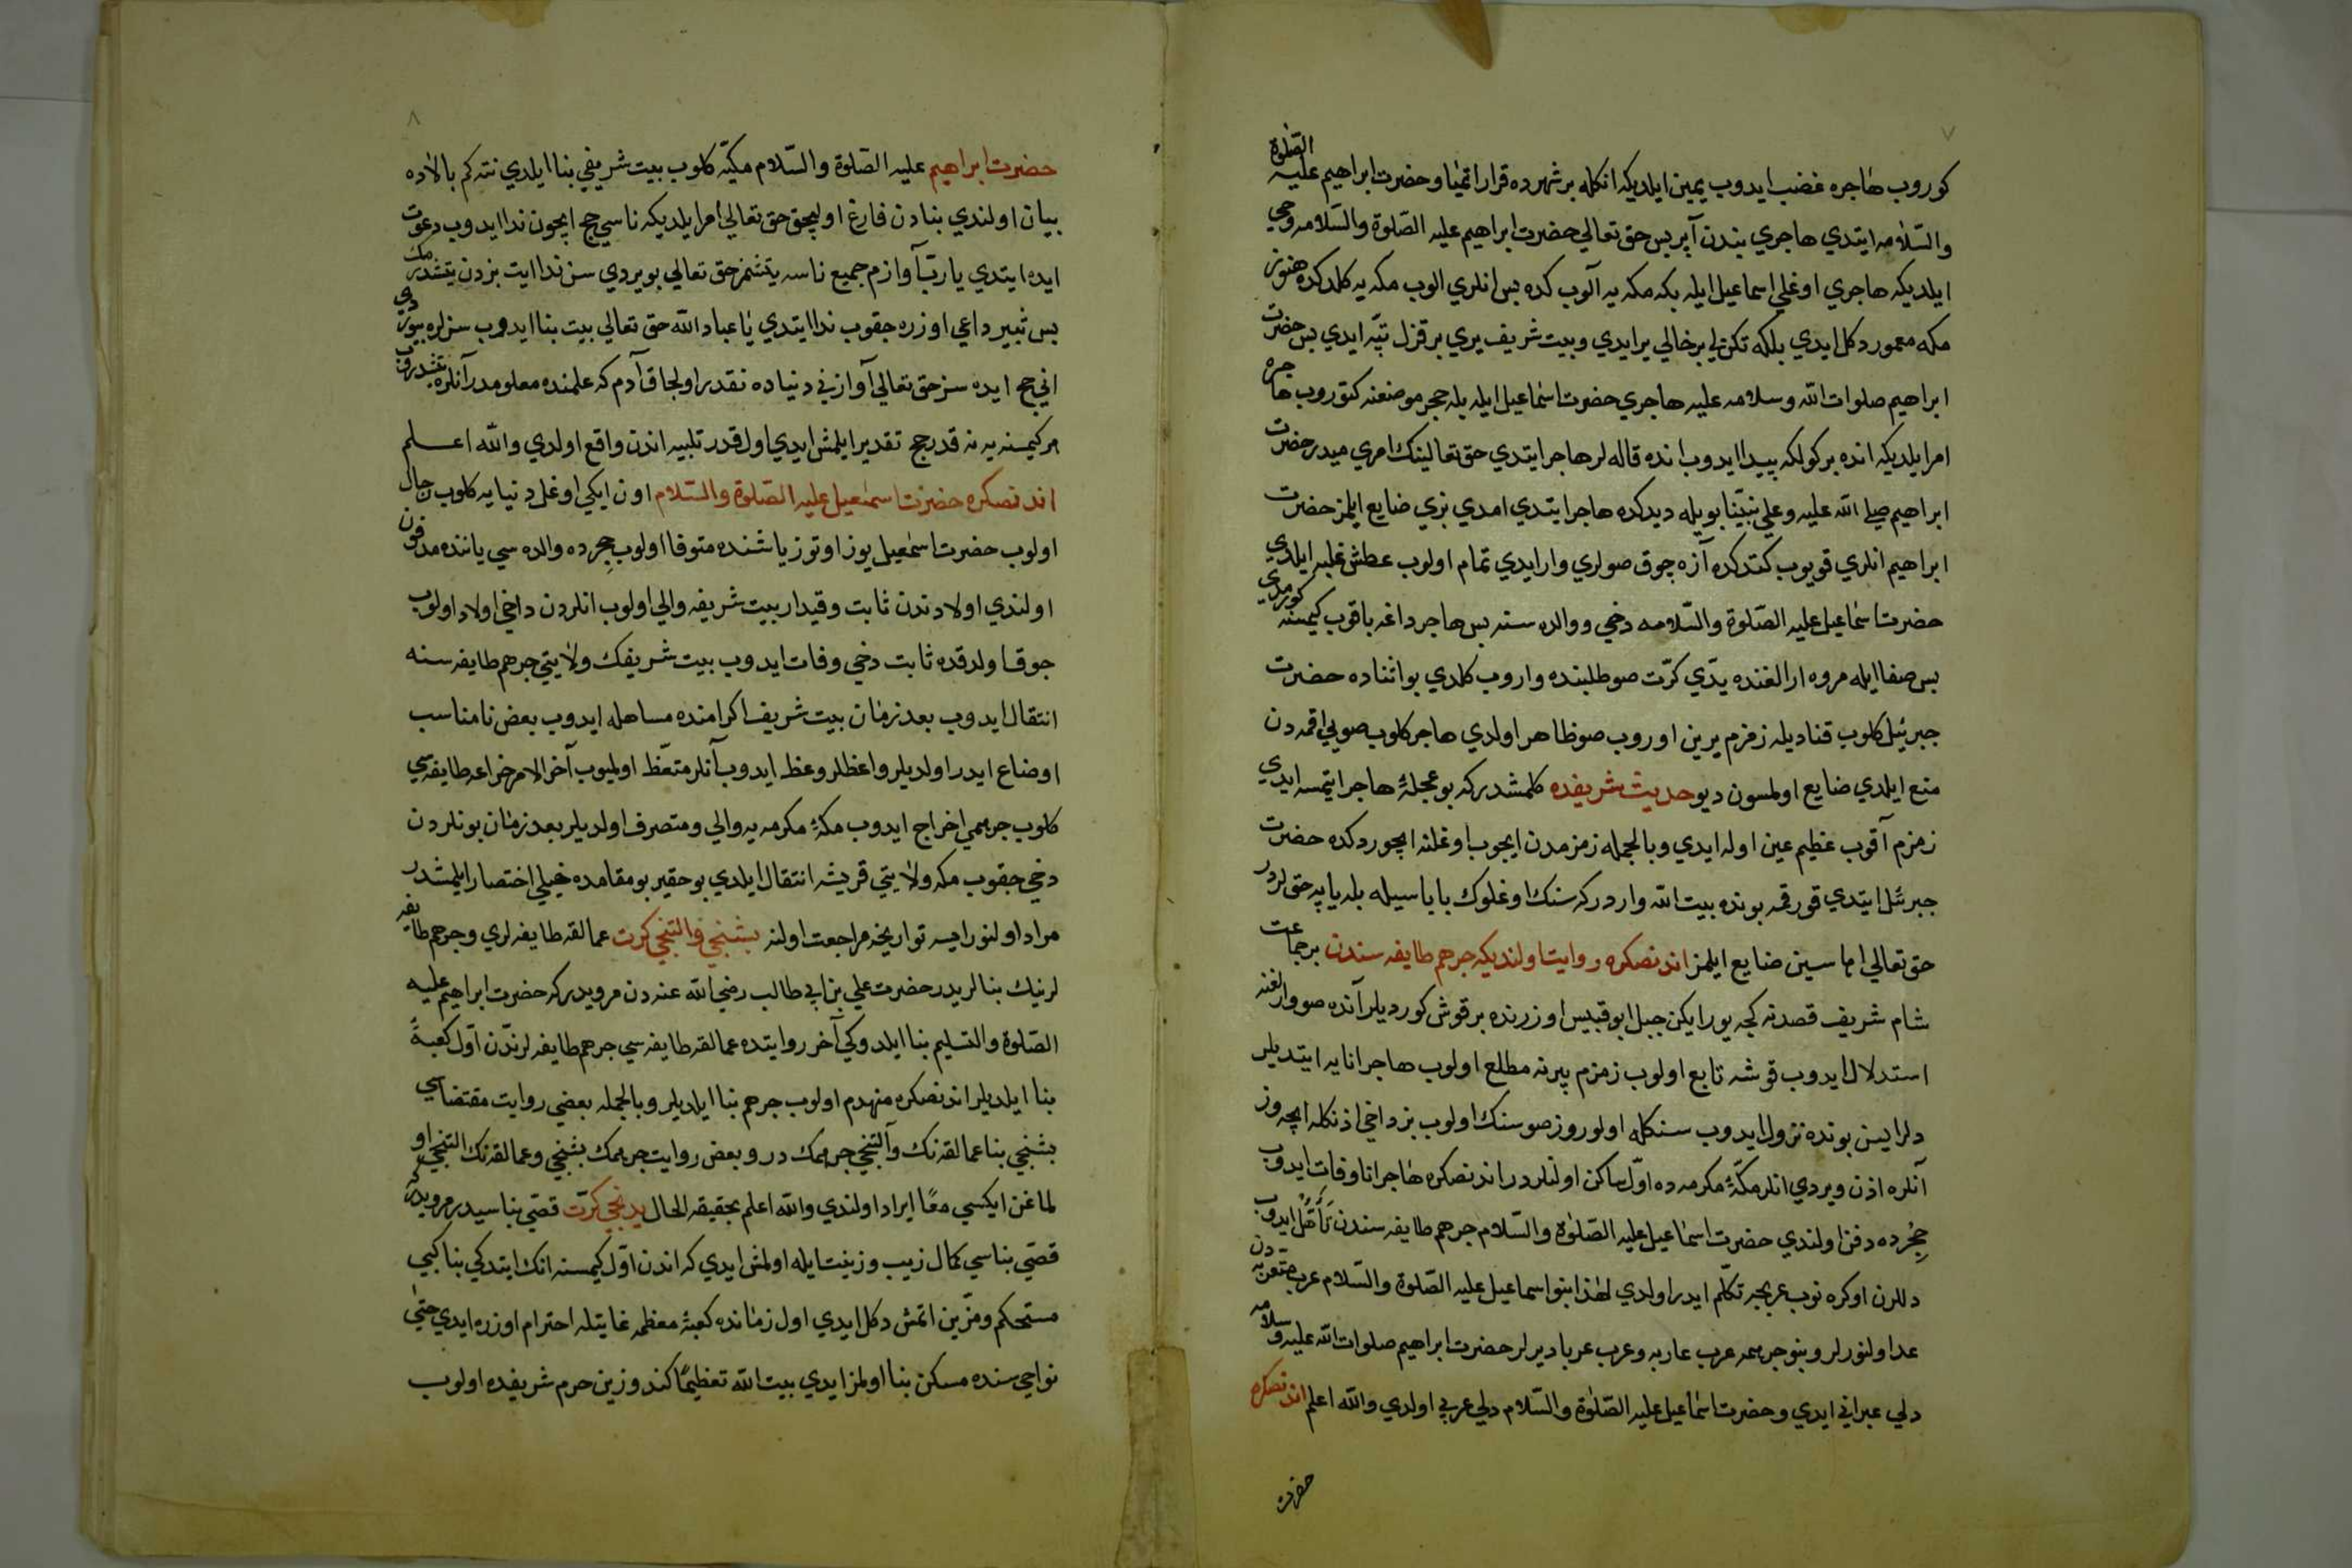 ٧
كوروب هاجره غضب ايدوب يمين ايلديكه انكله بر شهرده قرار اتميا و حضرت ابراهيم عليه الصلوة
والسلامه ايتدي هاجري بندن آير بس حق تعالي حضرت ابراهيم عليه الصلوة والسلامه وحي
ايلديكه هاجري اوغلي اسماعيل ايله بكه مكه يه آلوب كده بس انلري الوب مكه يه كلدكده هنوز
مكه معمور دكل ايدي بلكه تكنلي بر خالي ير ايدي وبيت شريف يري بر قزل تپه ايدي بس حضرت
ابراهيم صلوات الله وسلامه عليه هاجري حضرت اسماعيل ايله بله حجر موضعنه كتوروب هاجره
امر ايلديكه انده بر كولكه پيدا ايدوب انده قاله لر هاجر ايتدي حق تعالينك امري ميدر حضرت
ابراهيم صلي الله عليه وعلي نبينا بويله ديدكده هاجر ايتدي امدي بزي ضايع ايلمز حضرت
ابراهيم انلري قويوب كتدكده آزه جوق صولري وار ايدي تمام اولوب عطش غلبه ايلدي
حضرت اسماعيل عليه الصلوة والسلامه دخي ووالده سنه بس هاجر داغه باقوب كيمسنه كورمدي
بس صفا ايله مروه ارالغنده يدي كرت صو طلبنده واروب كلدي بو اثناده حضرت
جبرئيل كلوب قناديله زمزم يرين اوروب صو ظاهر اولدي هاجر كلوب صويي اقمه دن
منع ايلدي ضايع اولمسون ديو حديث شريفده كلمشدركه بو عجلۀ هاجر ايتمسه ايدي
زمزم آقوب عظيم عين اوله ايدي وبالجمله زمزمدن ايجوب اوغلنه ايچوردكده حضرت
جبرئل ايتدي قورقمه بونده بيت الله واردركه سنك اوغلوك باباسيله بله ياپه جق لردر
حق تعالي اهاسين ضايع ايلمز اندنصكره روايت اولنديكه جرهم طايفه سندن بر جماعت
شام شريف قصدنه كچه يورايكن جبل ابو قبيس اوزرنده بر قوش كورديلر آنده صو وارلغنه
استدلال ايدوب قوشه تابع اولوب زمزم پيرنه مطلع اولوب هاجر انايه ايتديلر
دلرايسن بونده نزول ايدوب سنكله اولوروز صو سنك اولوب بز داخي اذنكله ايچه وز
آنلره اذن ويردي انلر مكۀ مكرمه ده اول ساكن اولنلردر اندنصكره هاجر انا وفات ايدوب
حجرده دفن اولندي حضرت اسماعيل عليه الصلوة والسلام جرهم طايفه سندن تأهل ايدوب
دللرن اوكره نوب عربجه تكلم ايدر اولدي لهذا بنو اسماعيل عليه الصلوة والسلام عرب متعربه دن
عد اولنورلر وبنو جرهمه عرب عاربه وعرب عربا ديرلر حضرت ابراهيم صلوات الله عليه وسلامه
دلي عبراني ايدي وحضرت اسماعيل عليه الصلوة والسلام دلي عربي اولدي والله اعلم اندنصكره
حضرت
٨
حضرت ابراهيم عليه الصلوة والسلام مكيه كلوب بيت شريفي بنا ايلدي نته كم بالاده
بيان اولندي بنادن فارغ اوليچق حق تعالي امر ايلديكه ناسي حج ايچون ندا ايدوب دعوت
ايده ايتدي يارب آوازم جميع ناسه يتشمز حق تعالي بويردي سن ندا ايت بزدن يتشدرمك
بس ثبير داغي اوزره جقوب ندا ايتدي يا عباد الله حق تعالي بيت بنا ايدوب سزلره بيوردي
اني حج ايده سز حق تعالي آوازني دنياده نقدر اولجاق آدم كه علمنده معلومدر آنلره يتشدروب
هر كيمسنه يه نه قدر حج تقدير ايلمش ايدي اول قدر تلبيه اندن واقع اولدي والله اعلم
اندنصكره حضرت اسمعيل عليه الصلوة والسلام اون ايكي اوغل دنيايه كلوب رجال
اولوب حضرت اسمعيل يوز اوتوز ياشنده متوفا اولوب حجرده والده سي ياننده مدفون
اولندي اولادندن ثابت وقيدار بيت شريفه والي اولوب انلردن داخي اولاد اولوب
جوق اولدقده ثابت دخي وفات ايدوب بيت شريفك ولايتي جرهم طايفه سنه
انتقال ايدوب بعد زمان بيت شريف اكرامنده مساهله ايدوب بعض نامناسب
اوضاع ايدر اولديلر واعظلر وعظ ايدوب آنلر متعظ اولميوب آخر الامر خزاعه طايفه سي
كلوب جرهمي اخراج ايدوب مكۀ مكرمه يه والي ومتصرف اولديلر بعد زمان بونلردن
دخي جقوب مكه ولايتي قريشه انتقال ايلدي بو حقير بو مقامده خيلي اختصار ايلمشدر
مراد اولنورايسه تواريخه مراجعت اولنه بشنجي والتنجي كرت عمالقه طايفه لري وجرهم طايفه
لرينك بنالريدر حضرت علي بن ابي طالب رضي الله عنه دن مرويدركه حضرت ابراهيم عليه
الصلوة والتسليم بنا ايلدوكي آخر روايتده عمالقه طايفه سي جرهم طايفه لرندن اول كعبۀ
بنا ايلديلر اندنصكره منهدم اولوب جرهم بنا ايلديلر وبالجمله بعضي روايت مقتضاسي
بشنجي بنا عمالقه نك وآلتنجي جرهمك در وبعض روايت جرهمك بشنجي وعمالقه نك التنجي او
لماغن ايكسي معا ايراد اولندي والله اعلم بحقيقه الحال يدنجي كرت قصي بناسيدر مرويدركه
قصي بناسي كمال زيب وزينت ايله اولمش ايدي كه اندن اول كيمسنه انك ايتدكي بنا كبي
مستحكم ومزين اتمش دكل ايدي اول زمانده كعبۀ معظمه غايتله احترام اوزره ايدي حتي
نواحي سنده مسكن بنا اولمز ايدي بيت الله تعظيما كندوزين حرم شريفده اولوب